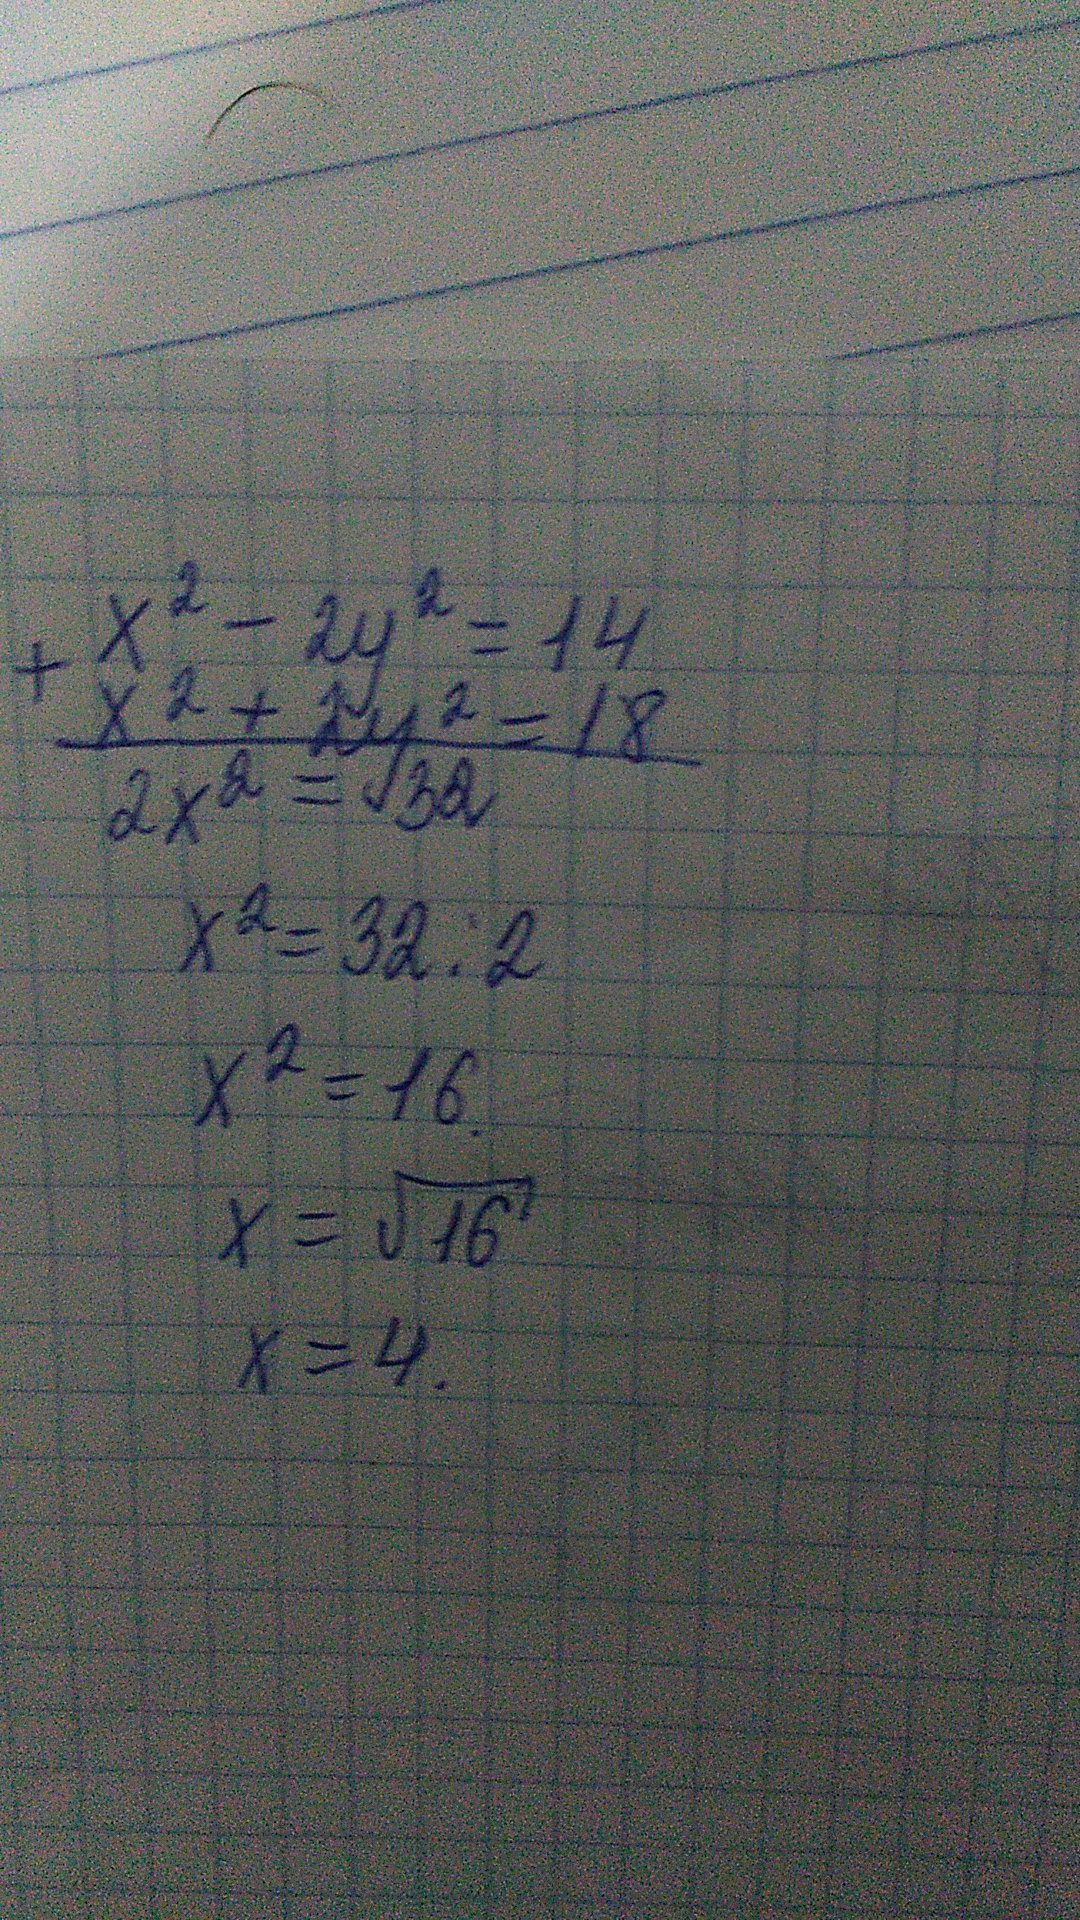 x² - 2y² = 14
+
x² + 2y² = 18
2x² = √32
x² = 32 : 2
x² = 16.
x = √16
x = 4.